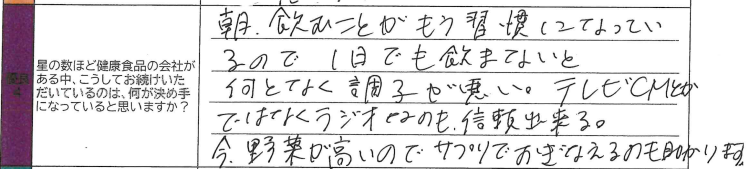 星の数ほど健康食品の会社が
ある中、こうしてお続けいた
だいているのは、何が決め手
になっていると思いますか？
朝、飲むことがもう習慣になってい
るので1日でも飲まないと
何となく調子が悪い。テレビCMとか
ではなくラジオなのも、信頼出来る。
今、野菜が高いのでサプリでおぎなえるのも助かります